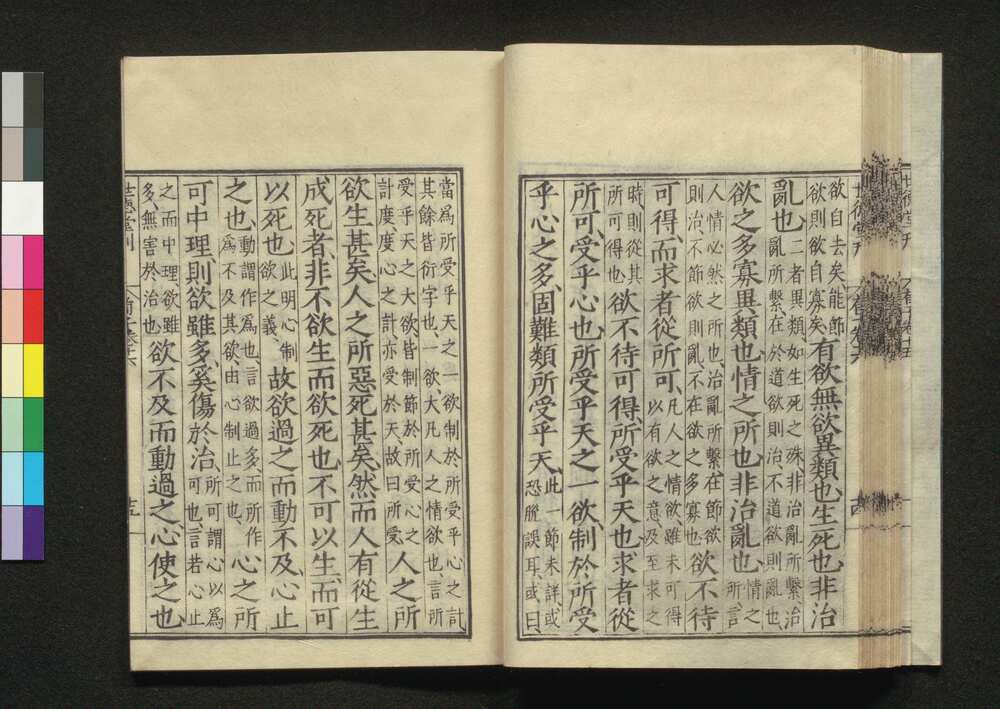 欲自去矣能節
欲則欲自寡矣
有欲無欲異類也生死也非治
亂也
二者異類如生死之殊非治亂所繫治
亂所繫在於道欲則治不道欲則亂也
欲之多寡異類也情之所也非治亂也
情之
所言
人情必然之所也治亂所繫在節欲
則治不節欲則亂不在欲之多寡也
欲不待
可得而求者從所可
凡人之情欲雖未可得
以有欲之意及至求之
時則從其
所可得也
欲不待可得所受乎天也求者從
所可受乎心也所受乎天之一欲制於所受
乎心之多固難類所受乎天
此一節未詳或
恐脫誤耳或曰
當爲所受乎天之一欲制於所受乎心之計
其餘皆衍字也一欲大凡人之情欲也言所
受乎天之大欲皆制節於所受心之
計度度心之計亦受於天故曰所受
人之所
欲生甚矣人之所惡死甚矣然而人有從生
成死者非不欲生而欲死也不可以生而可
以死也
此明心制
欲之義
故欲過之而動不及心止
之也
動謂作爲也言欲過多而所作
爲不及其欲由心制止之也
心之所
可中理則欲雖多奚傷於治
所可謂心以爲
可也言若心止
之而中理欲雖
多無害於治也
欲不及而動過之心使之也
世德堂刊